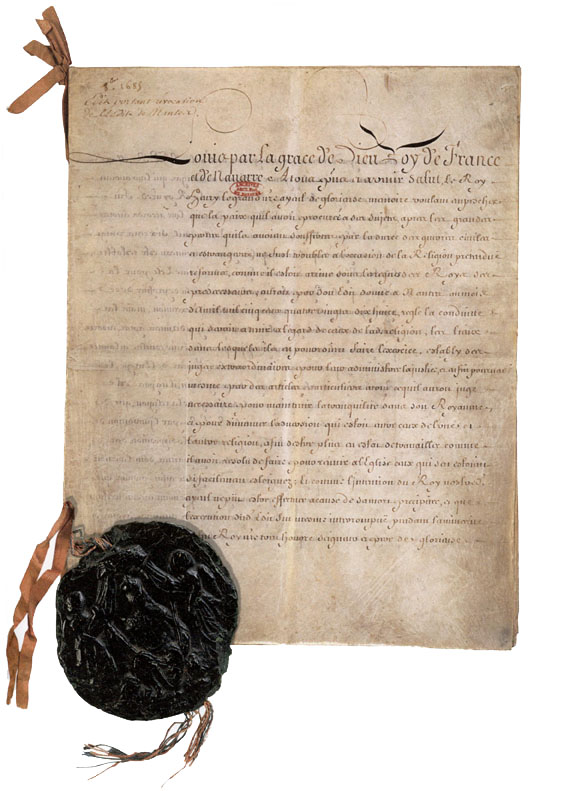 1685
Edit portant revocation
de l'Edit de Nantes
Louis par la grace de Dieu Roy de France
et de Navarre A tous presens et a venir Salut, le Roy
Henry le grand nostre ayeul de glorieuse memoire voulant empescher
que la paix qu'il avoit procurée a ses sujets apres les grandes
pertes qu'ils avoient souffertes par la durée des guerres civiles
et estrangeres, ne fust troublée a l'occasion de la Religion pretendue
reformée, comme il estoit arrivé sous les regnes des Roys ses
predecesseurs, auroit par son Edit donné a Nantes au mois
d'Avril mil cinq cens quatre vingts dix huict, reglé la conduitte
qui seroit a tenir a l'egard de ceux de ladite religion, les lieux
dans lesquels ils en pourroient faire l'exercice, estably des
juges extraordinaires pour leur administrer la justice, et enfin pourveu
mesme par des articles particuliers a tout ce qu'il auroit jugé
necessaire pour maintenir la tranquilité dans son Royaume
et pour diminuer l'aversion qui estoit entre ceux de l'une et
l'autre religion, afin d'estre plus en estat de travailler comme
il avoit resolu de faire pour reunir a l'Eglise ceux qui s'en estoient
si facilement esloignez; Et comme l'intention du Roy nostredit
ayeul ne put estre effectuée a cause de sa mort precipitée, et que
l'execution dudit Edit fut mesme interrompue pendant la minorité
du feu Roy nostre tres honoré seigneur et pere de glorieuse